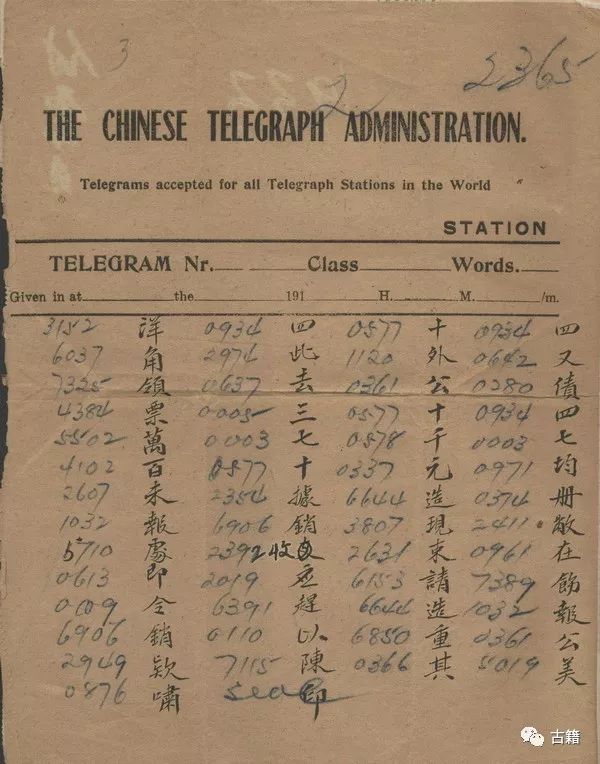 3
2
2365
THE CHINESE TELEGRAPH ADMINISTRATION.
Telegrams accepted for all Telegraph Stations in the World
STATION
TELEGRAM Nr. Class Words.
Given in at the 191 H. M. /m.
3152 洋 0934 四 0577 十 0934 四
6037 角 2974 此 1120 外 0642 又
7325 領 0637 去 0361 公 0280 債
4384 票 0005 三 0577 十 0934 四
5502 萬 0003 七 0578 千 0003 七
4102 百 0577 十 0337 元 0971 均
2607 未 2354 據 6644 造 0374 册
1032 報 6906 銷 3807 現 2411
5710 處 2392 收 2631 束 0961 在
0613 即 2019 6153 請 7389 飭
0109 令 6391 趕 6644 造 1032 報
6906 銷 0110 以 6850 重 0361 公
2949 欵 7115 陳 0366 其 5019 美
0876 嘯 seal 印
古籍